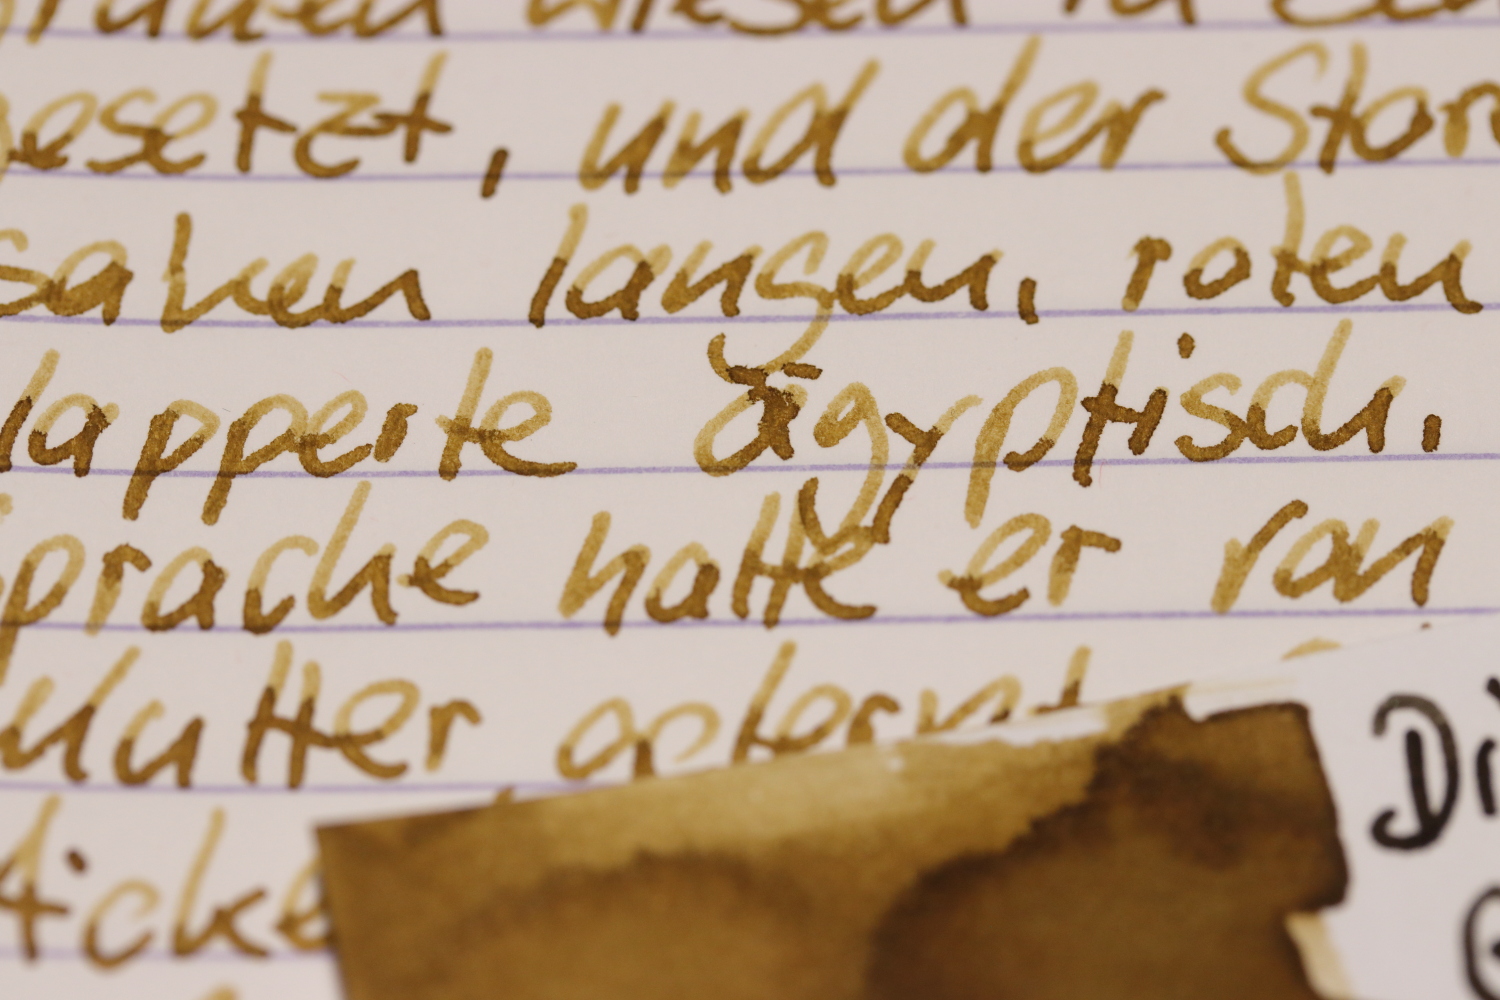 wiesen in
gesetzt, und der Stor
sahen langen, roten
lapperte ägyptisch,
prache hatte er von
Mutter gelernt
Di